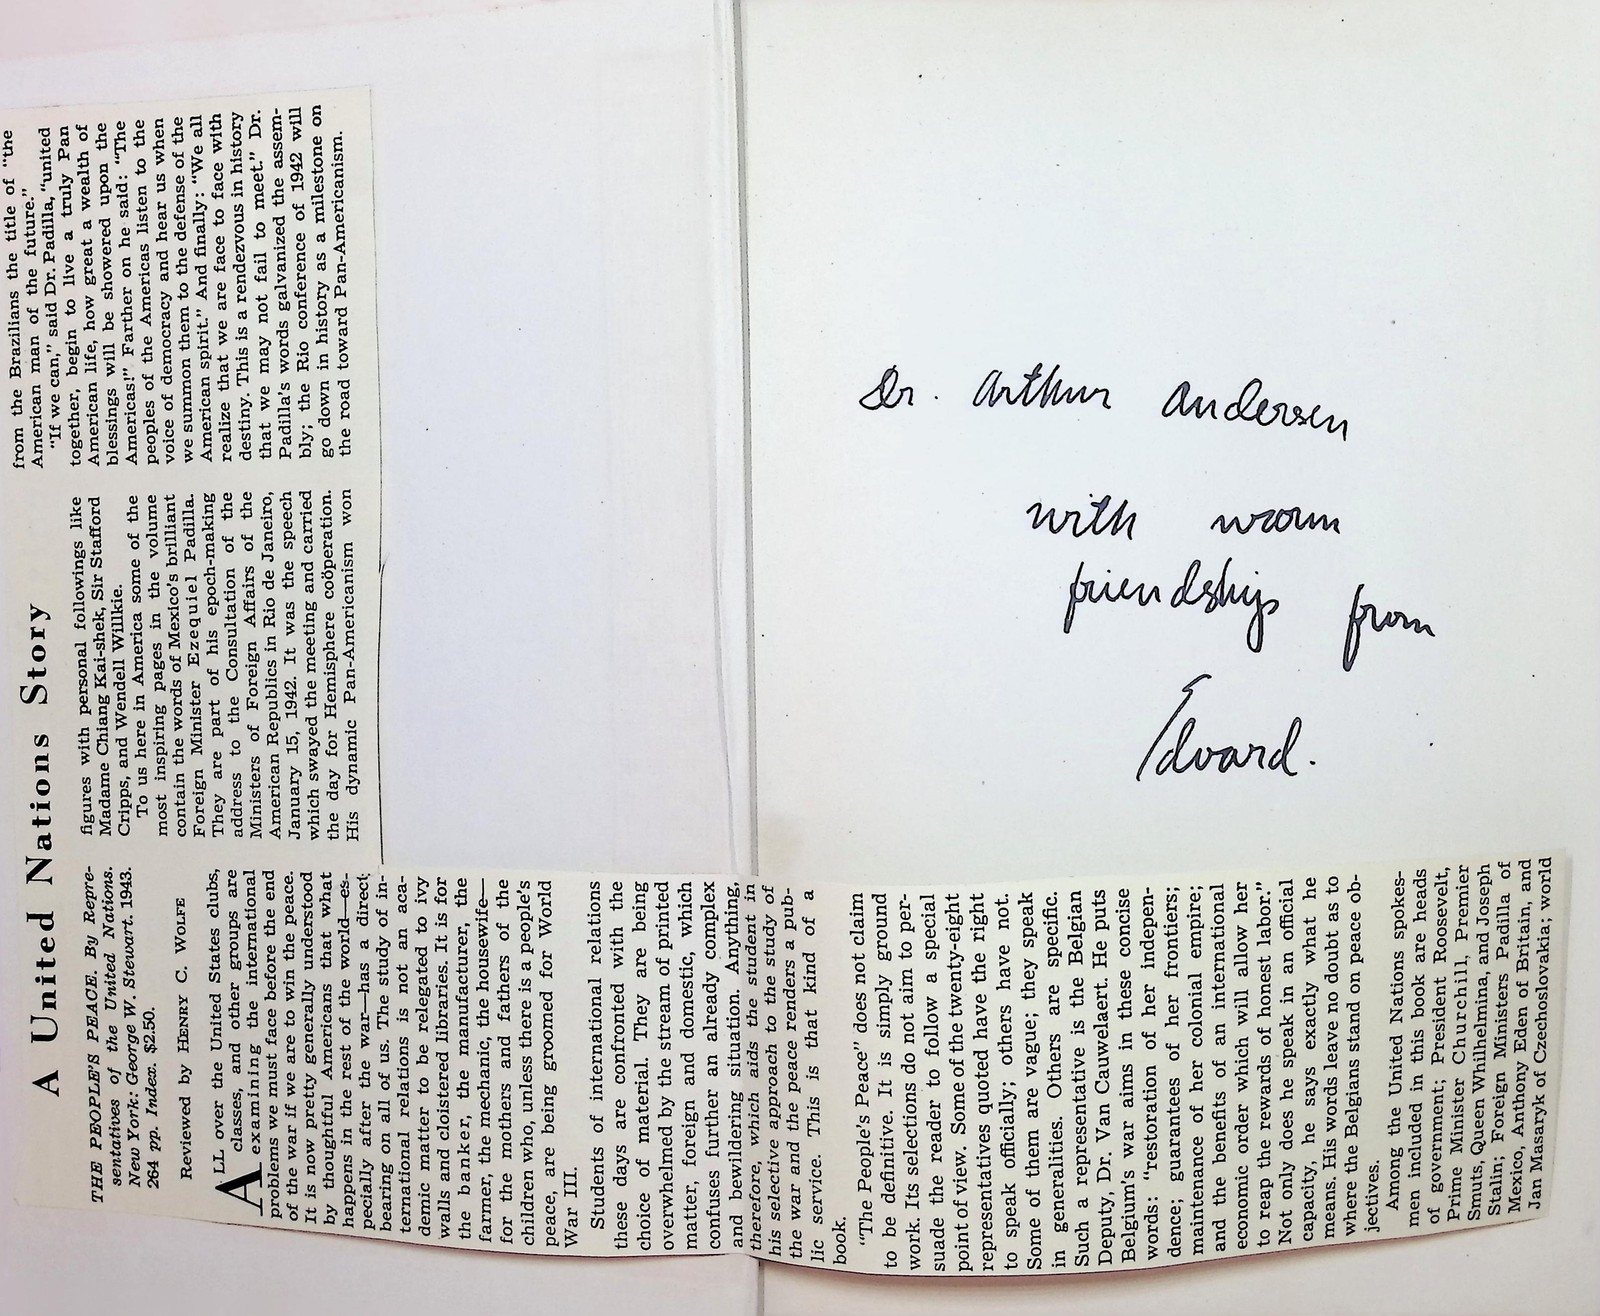 A United Nations Story
THE PEOPLE'S PEACE. By Repre-
sentatives of the United Nations.
New York: George W. Stewart. 1943.
264 pp. Index. $2.50.
Reviewed by HENRY C. WOLFE
ALL over the United States clubs,
classes, and other groups are
examining the international
problems we must face before the end
of the war if we are to win the peace.
It is now pretty generally understood
by thoughtful Americans that what
happens in the rest of the world—es-
pecially after the war—has a direct
bearing on all of us. The study of in-
ternational relations is not an aca-
demic matter to be relegated to ivy
walls and cloistered libraries. It is for
the banker, the manufacturer, the
farmer, the mechanic, the housewife—
for the mothers and fathers of the
children who, unless there is a people's
peace, are being groomed for World
War III.
Students of international relations
these days are confronted with the
choice of material. They are being
overwhelmed by the stream of printed
matter, foreign and domestic, which
confuses further an already complex
and bewildering situation. Anything,
therefore, which aids the student in
his selective approach to the study of
the war and the peace renders a pub-
lic service. This is that kind of a
book.
"The People's Peace" does not claim
to be definitive. It is simply ground
work. Its selections do not aim to per-
suade the reader to follow a special
point of view. Some of the twenty-eight
representatives quoted have the right
to speak officially; others have not.
Some of them are vague; they speak
in generalities. Others are specific.
Such a representative is the Belgian
Deputy, Dr. Van Cauwelaert. He puts
Belgium's war aims in these concise
words: "restoration of her indepen-
dence; guarantees of her frontiers;
maintenance of her colonial empire;
and the benefits of an international
economic order which will allow her
to reap the rewards of honest labor."
Not only does he speak in an official
capacity, he says exactly what he
means. His words leave no doubt as to
where the Belgians stand on peace ob-
jectives.
Among the United Nations spokes-
men included in this book are heads
of government; President Roosevelt,
Prime Minister Churchill, Premier
Smuts, Queen Whilhelmina, and Joseph
Stalin; Foreign Ministers Padilla of
Mexico, Anthony Eden of Britain, and
Jan Masaryk of Czechoslovakia; world
figures with personal followings like
Madame Chiang Kai-shek, Sir Stafford
Cripps, and Wendell Willkie.
To us here in America some of the
most inspiring pages in the volume
contain the words of Mexico's brilliant
Foreign Minister Ezequiel Padilla.
They are part of his epoch-making
address to the Consultation of the
Ministers of Foreign Affairs of the
American Republics in Rio de Janeiro,
January 15, 1942. It was the speech
which swayed the meeting and carried
the day for Hemisphere coöperation.
His dynamic Pan-Americanism won
from the Brazilians the title of "the
American man of the future."
"If we can," said Dr. Padilla, "united
together, begin to live a truly Pan
American life, how great a wealth of
blessings will be showered upon the
Americas!" Farther on he said: "The
peoples of the Americas listen to the
voice of democracy and hear us when
we summon them to the defense of the
American spirit." And finally: "We all
realize that we are face to face with
destiny. This is a rendezvous in history
that we may not fail to meet." Dr.
Padilla's words galvanized the assem-
bly; the Rio conference of 1942 will
go down in history as a milestone on
the road toward Pan-Americanism.
Dr. Arthur Andersen
with warm
friendship from
Edvard.